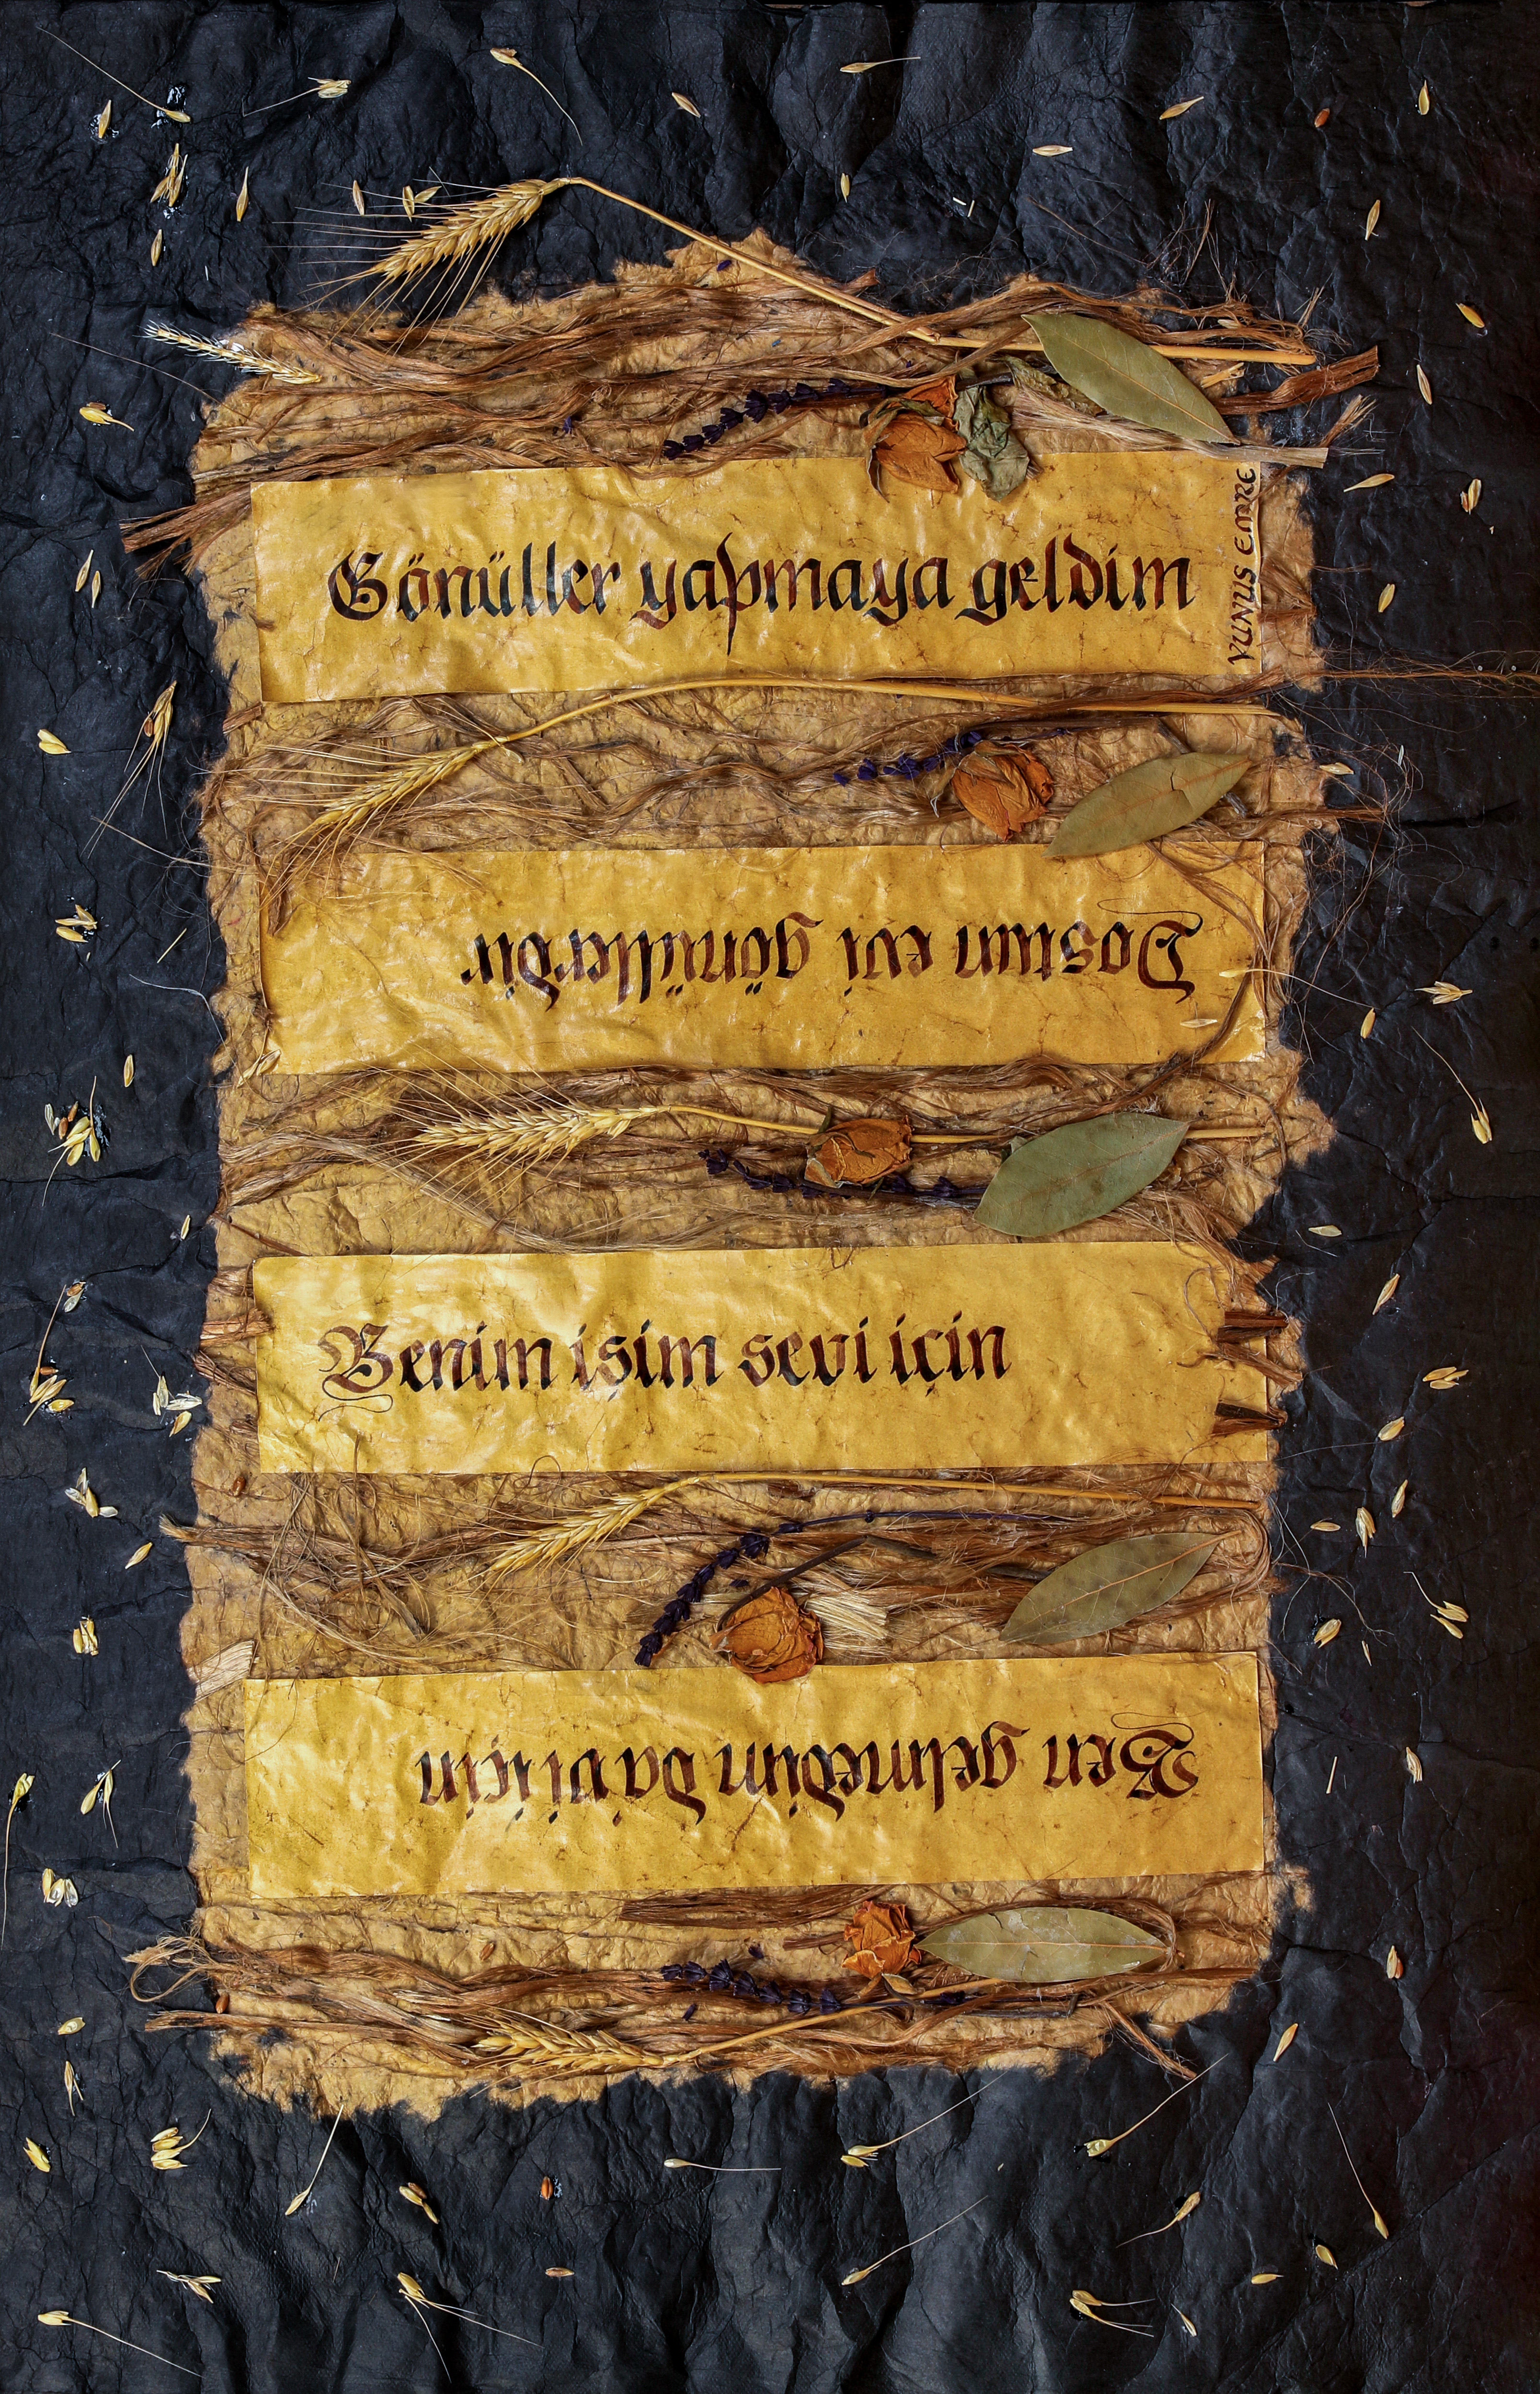 Gönüller yapmaya geldim
YUNUS EMRE
Dostun evi gönüllerdir
Benim işim sevi için
Ben gelmedim davi için